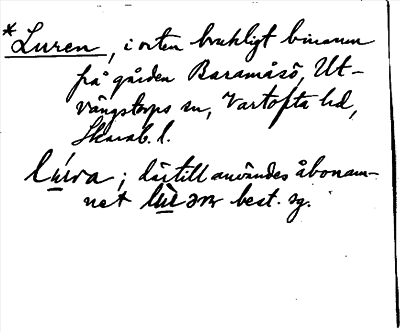 *Luren, i orten brukligt binamn
på gården Baramåsö, Ut-
vängstorps sn, Vartofta hd,
Skarab. l.
lúra; därtill användes åbonam-
net lùən best. sg.